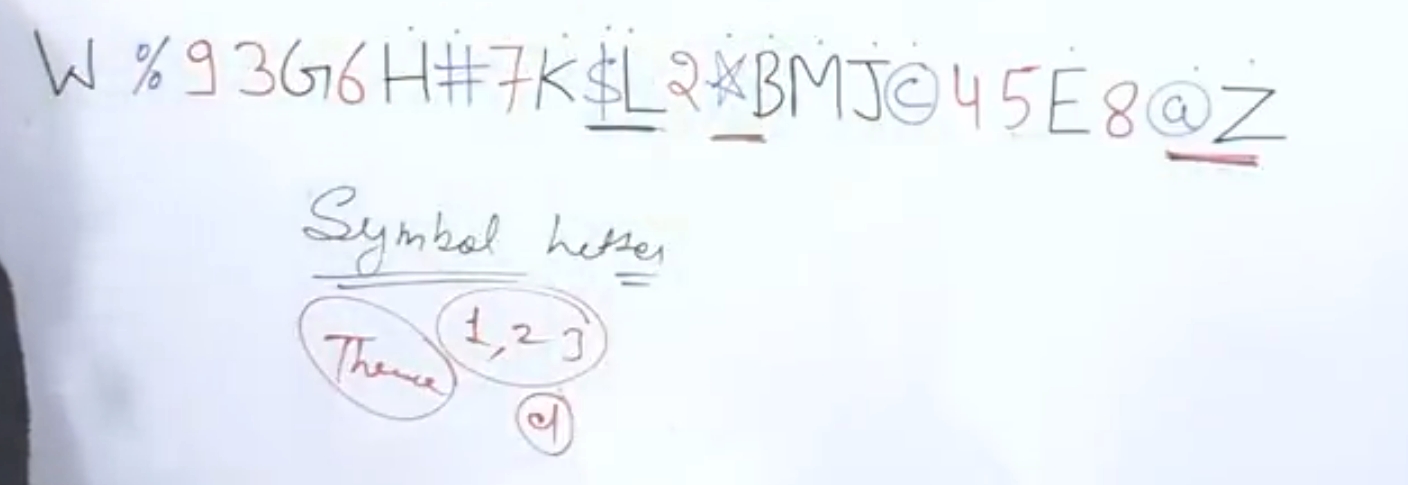 W % 9 3 G 6 H # 7 K $ L 2 * B M J © 4 5 E 8 @ Z
Symbol Letter
Three 1, 2 3
d